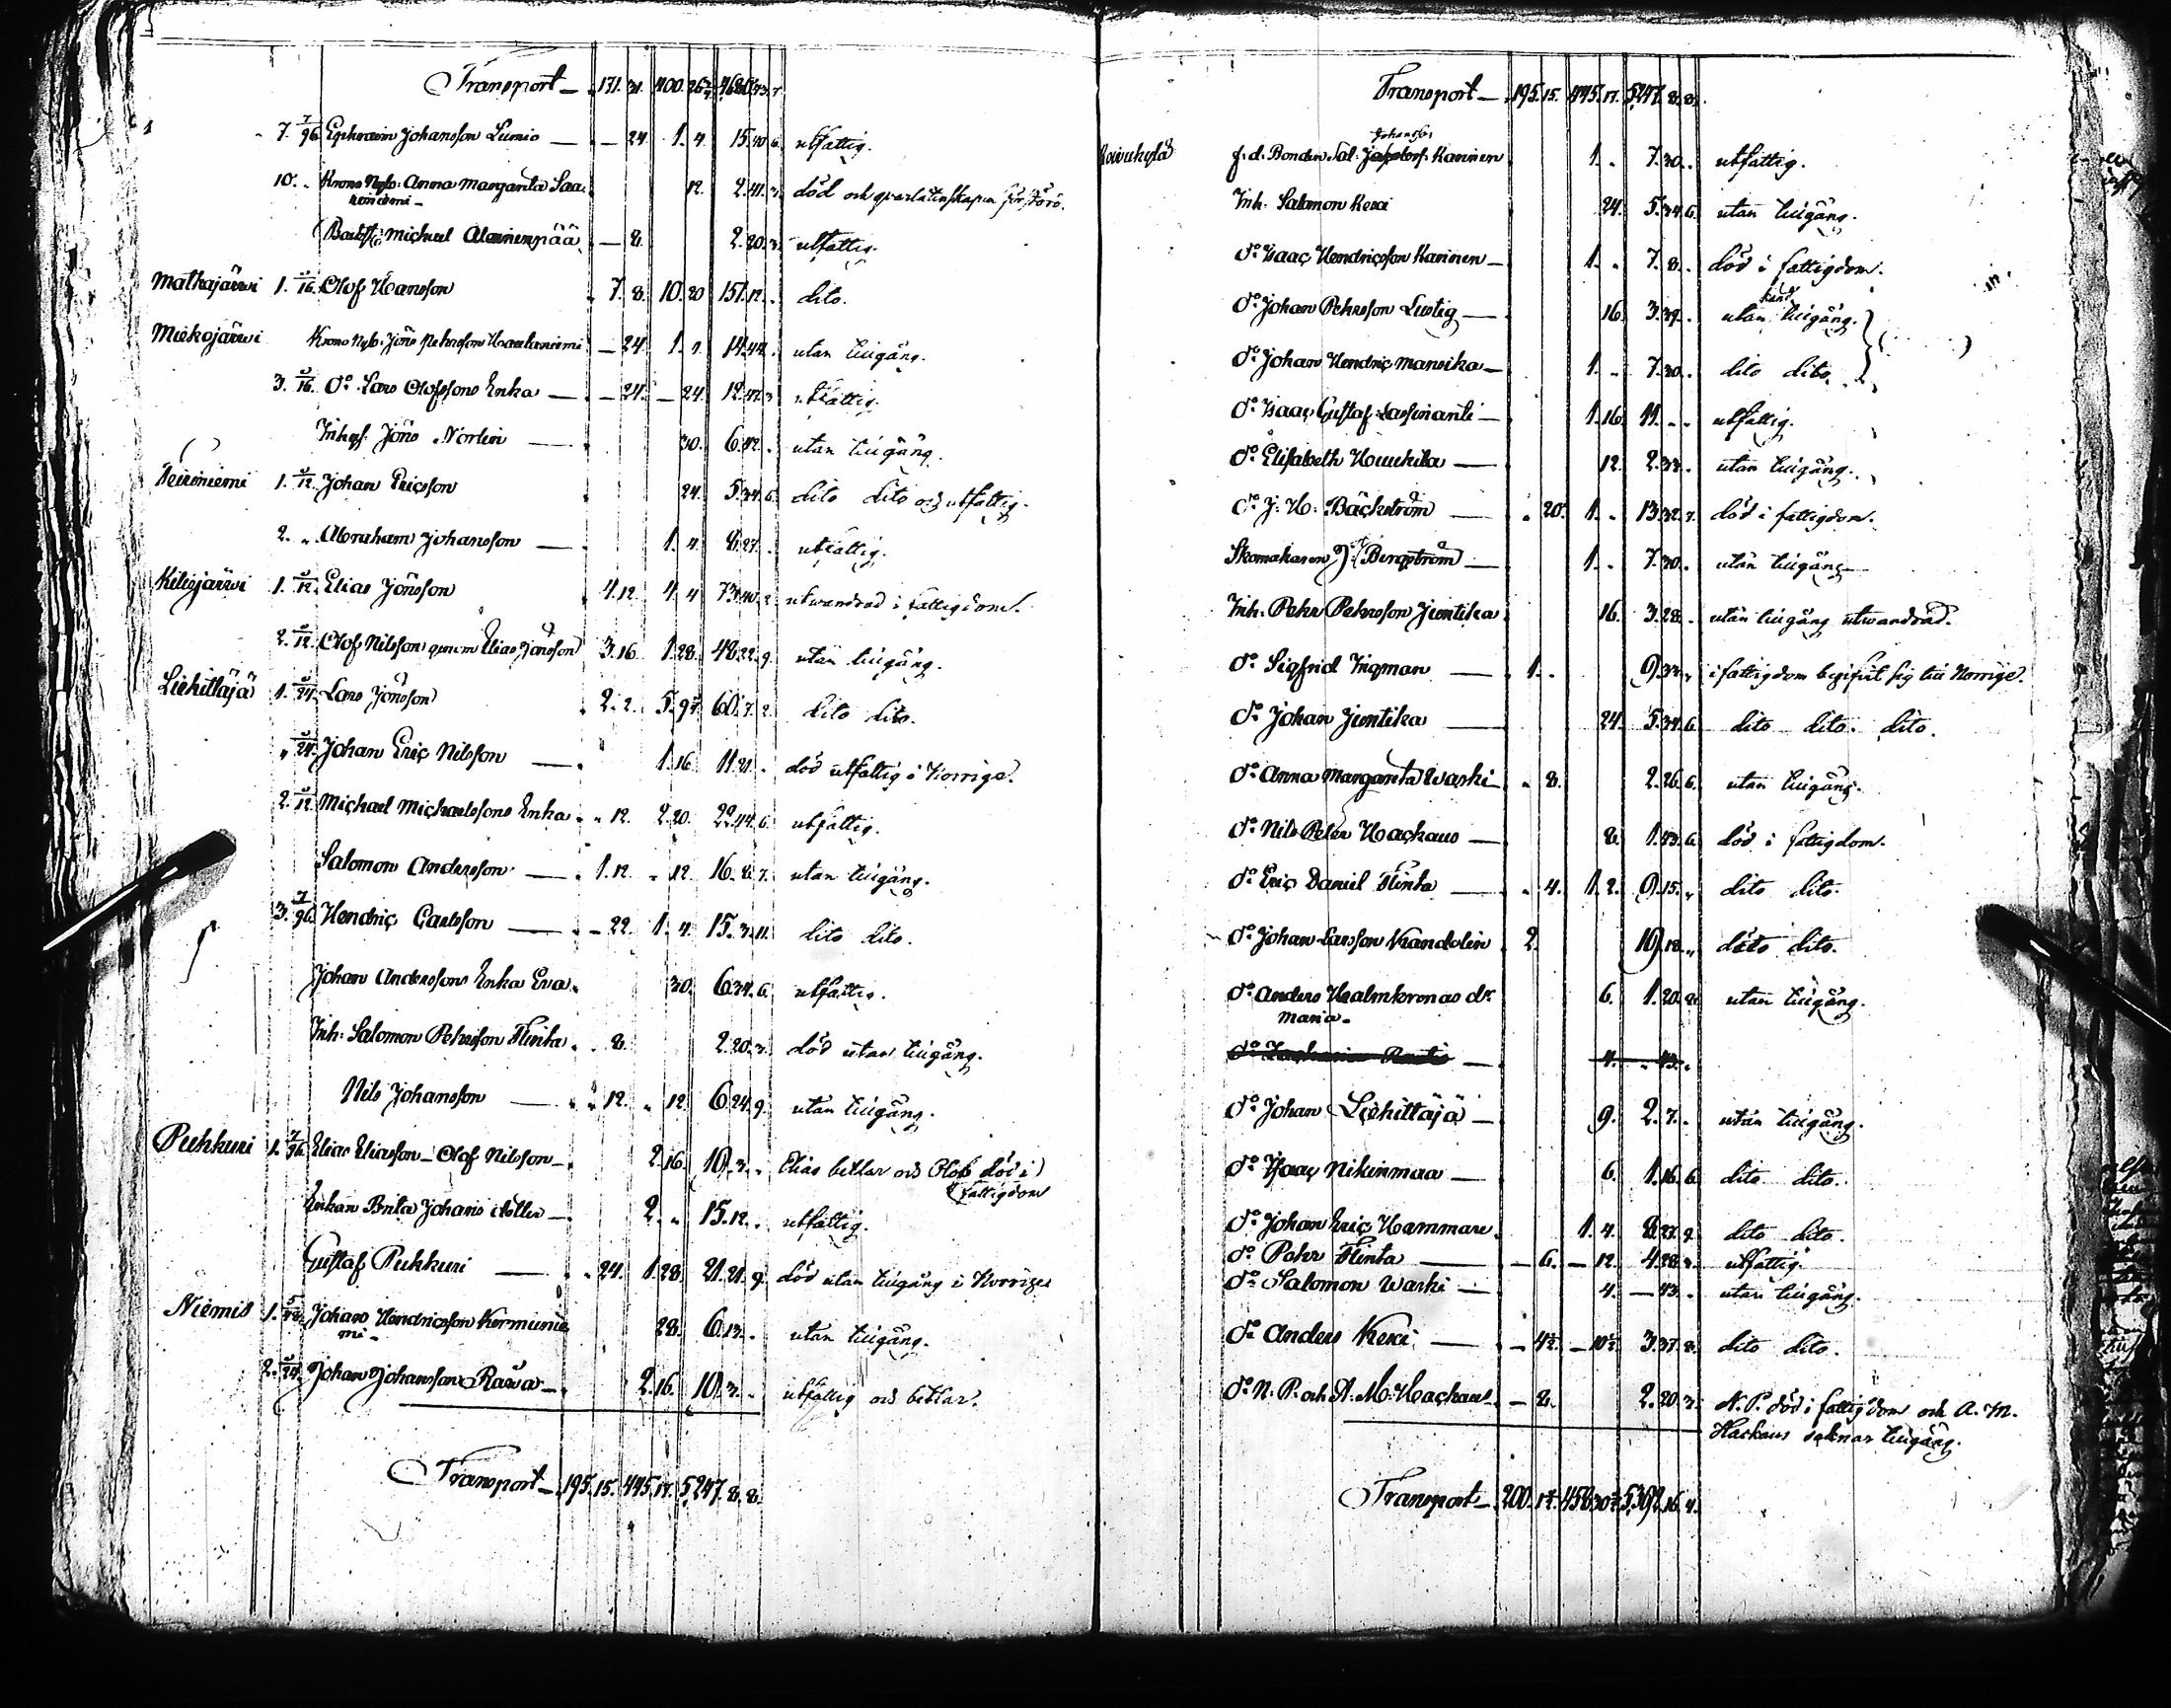 Transport — 171. 31. 400. 26
7. 7/96 Ephraim Johansson Lumio — — 24. 1. 4. 15. 40. 6. utfattig.
10. " Krono Nyb: Anna Margareta Saa-
12. 2. 41. 3. död och qvarlåtenskapen förstörd.
Michael Alainenpää — 8. 2. 20. 3. utfattig.
Matkajärwi 1. 5/16. Olof Hansson 7. 8. 10. 20 151. 12. . dito.
Miekojärwi Krono Nyb: Jöns Pehrsson — 24. 1. 14. 44. utan tillgång.
3. 5/16. Do Lars Olofssons Enka — — 24. — 24. 12. utfattig.
Inhys: Jöns Norlin — 30. 6. 12. . utan tillgång.
1. 5/12. Johan Ericsson 24. 5. 34. 6. dito dito och utfattig.
2. " Abraham Johansson — 1. 4. 8. 27. . utfattig.
1. 5/12. Elias Jönsson 4. 12. 4. 4 73. 40. 2. utwandrad i fattigdom.
2. 5/12. Olof Nilsson genom Elias Jönsson 3. 16. 1. 28. 48. 22. 9. utan tillgång.
Liehittäjä 1. 5/24. Lars Jönsson 2. 2. 5. 60. 7. 2. dito dito.
" 5/24. Johan Eric Nilsson — 1. 16. 11. 21. . död utfattig i Norrige.
2. 5/12. Michael Michaelssons Enka " 12. 2. 20. 22. 44. 6. utfattig.
Salomon Andersson — 1. 12. " 12. 16. 8. 7. utan tillgång.
3. 7/96. Hendric Carlsson — — 22. 1. 4. 15. 3. 11. dito dito.
Johan Anderssons Enka Eva. 30. 6. 34. 6. utfattig.
Inh: Salomon Pehrsson Flinka . . 8. 2. 20. 3. död utan tillgång.
Nils Johansson — " 12. " 12. 6. 24. 9. utan tillgång.
Puhkuri 1. 7/96 Elias Eliasson — Olof Nilsson — 2. 16. 19. 3. . Elias bettlar och Olof död i
fattigdom
Enkan Brita Johans — 2. " 15. 12. . utfattig.
Gustaf Puhkuri — " 24. 1. 28. 21. 21. 9. död utan tillgång i Norriges
Niemis 1. Johan Hendricsson Kermunie
mi — 28. 6. 13. . utan tillgång.
2. 5/24. Johan Johansson Rawa — 2. 16. 19. 3. . utfattig och bettlar.
Transport — 195. 15. 445. 17. 5,247. 8. 8.
Transport — 195. 15. 445. 17. 5,247. 8. 8.
Johanss:
f. d. Bonden Sal: Kaninen 1. . 7. 30. . utfattig.
Inh: Salomon Kexi 24. 5. 34. 6. utan tillgång.
Do Isaac Hendricsson Kaninen — 1. . 7. 8. . död i fattigdom.
Do Johan Pehrsson Lustig — 16. 3. 39. . utan känd tillgång.
Do Johan Hendric Mansika — 1. . 7. 30. . dito dito.
Do Isaac Gustaf Lassinanti — 1. 16. 11. . . utfattig.
Do Elisabeth — 12. 2. 33. . utan tillgång.
Do J. H: Bäckström — . 20. 1. . 13. 32. 7. död i fattigdom.
Skomakaren Bergström — 1. . 7. 30. . utan tillgång —
Inh: Pehr Pehrsson Juntika 16. 3. 28. . utan tillgång utwandrad.
Do Sigfrid Ingman — 1. . 9. 33. " i fattigdom begifvit sig till Norrige.
Do Johan Juntika — 24. 5. 34. 6. dito dito. dito.
Do Anna Margareta Waski — . 8. 2. 26. 6. utan tillgång.
Do Nils Peter Hackaus — 8. 1. 43. 6. död i fattigdom.
Do Eric Daniel Flinka — . 4. 1. 2. 9. 15. " dito dito.
Do Johan Larsson Kandolin 2. 19. 12. " dito dito.
Do Anders Malmkronas dr
Maria — 6. 1. 20. utan tillgång.
4. . 43. .
Do Johan Liehittäjä — 9. 2. 7. . utan tillgång.
Do Isaac Nikinmaa — 6. 1. 16. 6. dito dito.
Do Johan Eric Hammare. 1. 4. 8. 27. 9. dito dito.
Do Pehr Flinka — — 6. — 12. 4. 28. utfattig.
Do Salomon Waski — 4. — 43. . utan tillgång.
Do Anders Kexi. — — 4½. — 10½. 3. 37. 8. dito dito.
Do N. P. och A. M. Hackaus — — 8. 2. 20. 3. N. P. död i fattigdom och A. M.
Hackaus saknar tillgång.
Transport — 200. 458. 5,392. 16. 4.